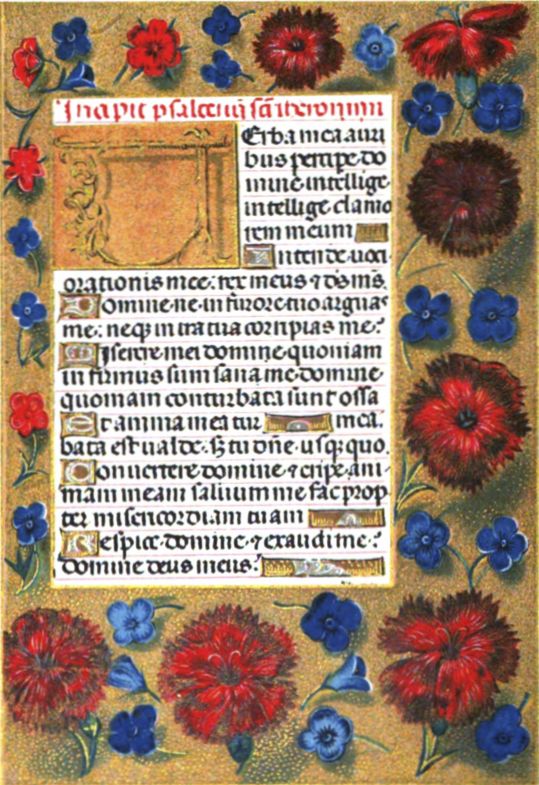 Incipit psalteriũ sc̃i iheronimi
Uerba mea auri
bus percipe do
mine intellige
intellige clamo
rem meum
Intende uoci
orationis mee: rex meus ⁊ ds̃ ms̃.
Domine ne in furore tuo arguas
me: neqꝫ in ira tua corripias me:
Miserere mei domine quoniam
infirmus sum sana me domine
quoniam conturbata sunt ossa
Et anima mea tur mea.
bata est ualde. sꝫ tu dñe usqꝫ quo.
Conuertere domine ⁊ eripe ani
mam meam saluum me fac prop
ter misericordiam tuam
Respice domine ⁊ exaudi me:
domine deus meus: